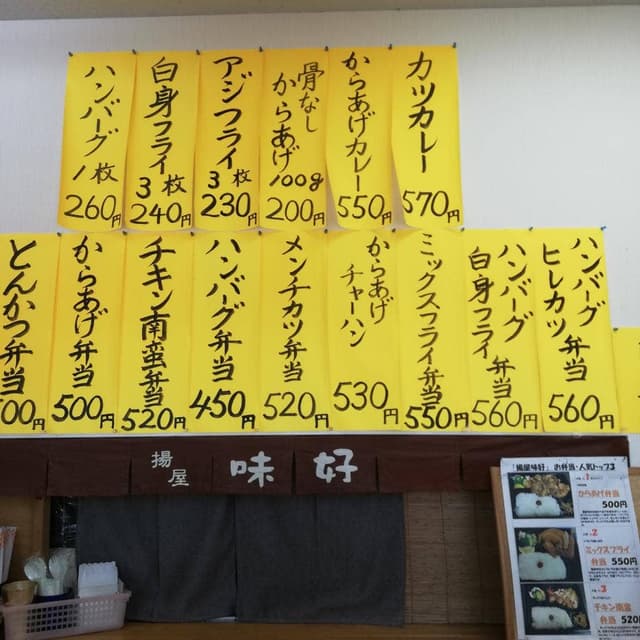 ハンバーグ
1枚
260円
白身フライ
3枚
240円
アジフライ
3枚
230円
骨なし
からあげ
100g
200円
からあげカレー
550円
カツカレー
570円
とんかつ弁当
00円
からあげ弁当
500円
チキン南蛮弁当
520円
ハンバーグ弁当
450円
メンチカツ弁当
520円
からあげ
チャーハン
530円
ミックスフライ弁当
550円
ハンバーグ
白身フライ
弁当
560円
ハンバーグ
ヒレカツ
弁当
560円
揚屋
味好
「揚屋味好」お弁当・人気トップ3
1
からあげ弁当
500円
2
ミックスフライ
弁当 550円
3
チキン南蛮
弁当 520